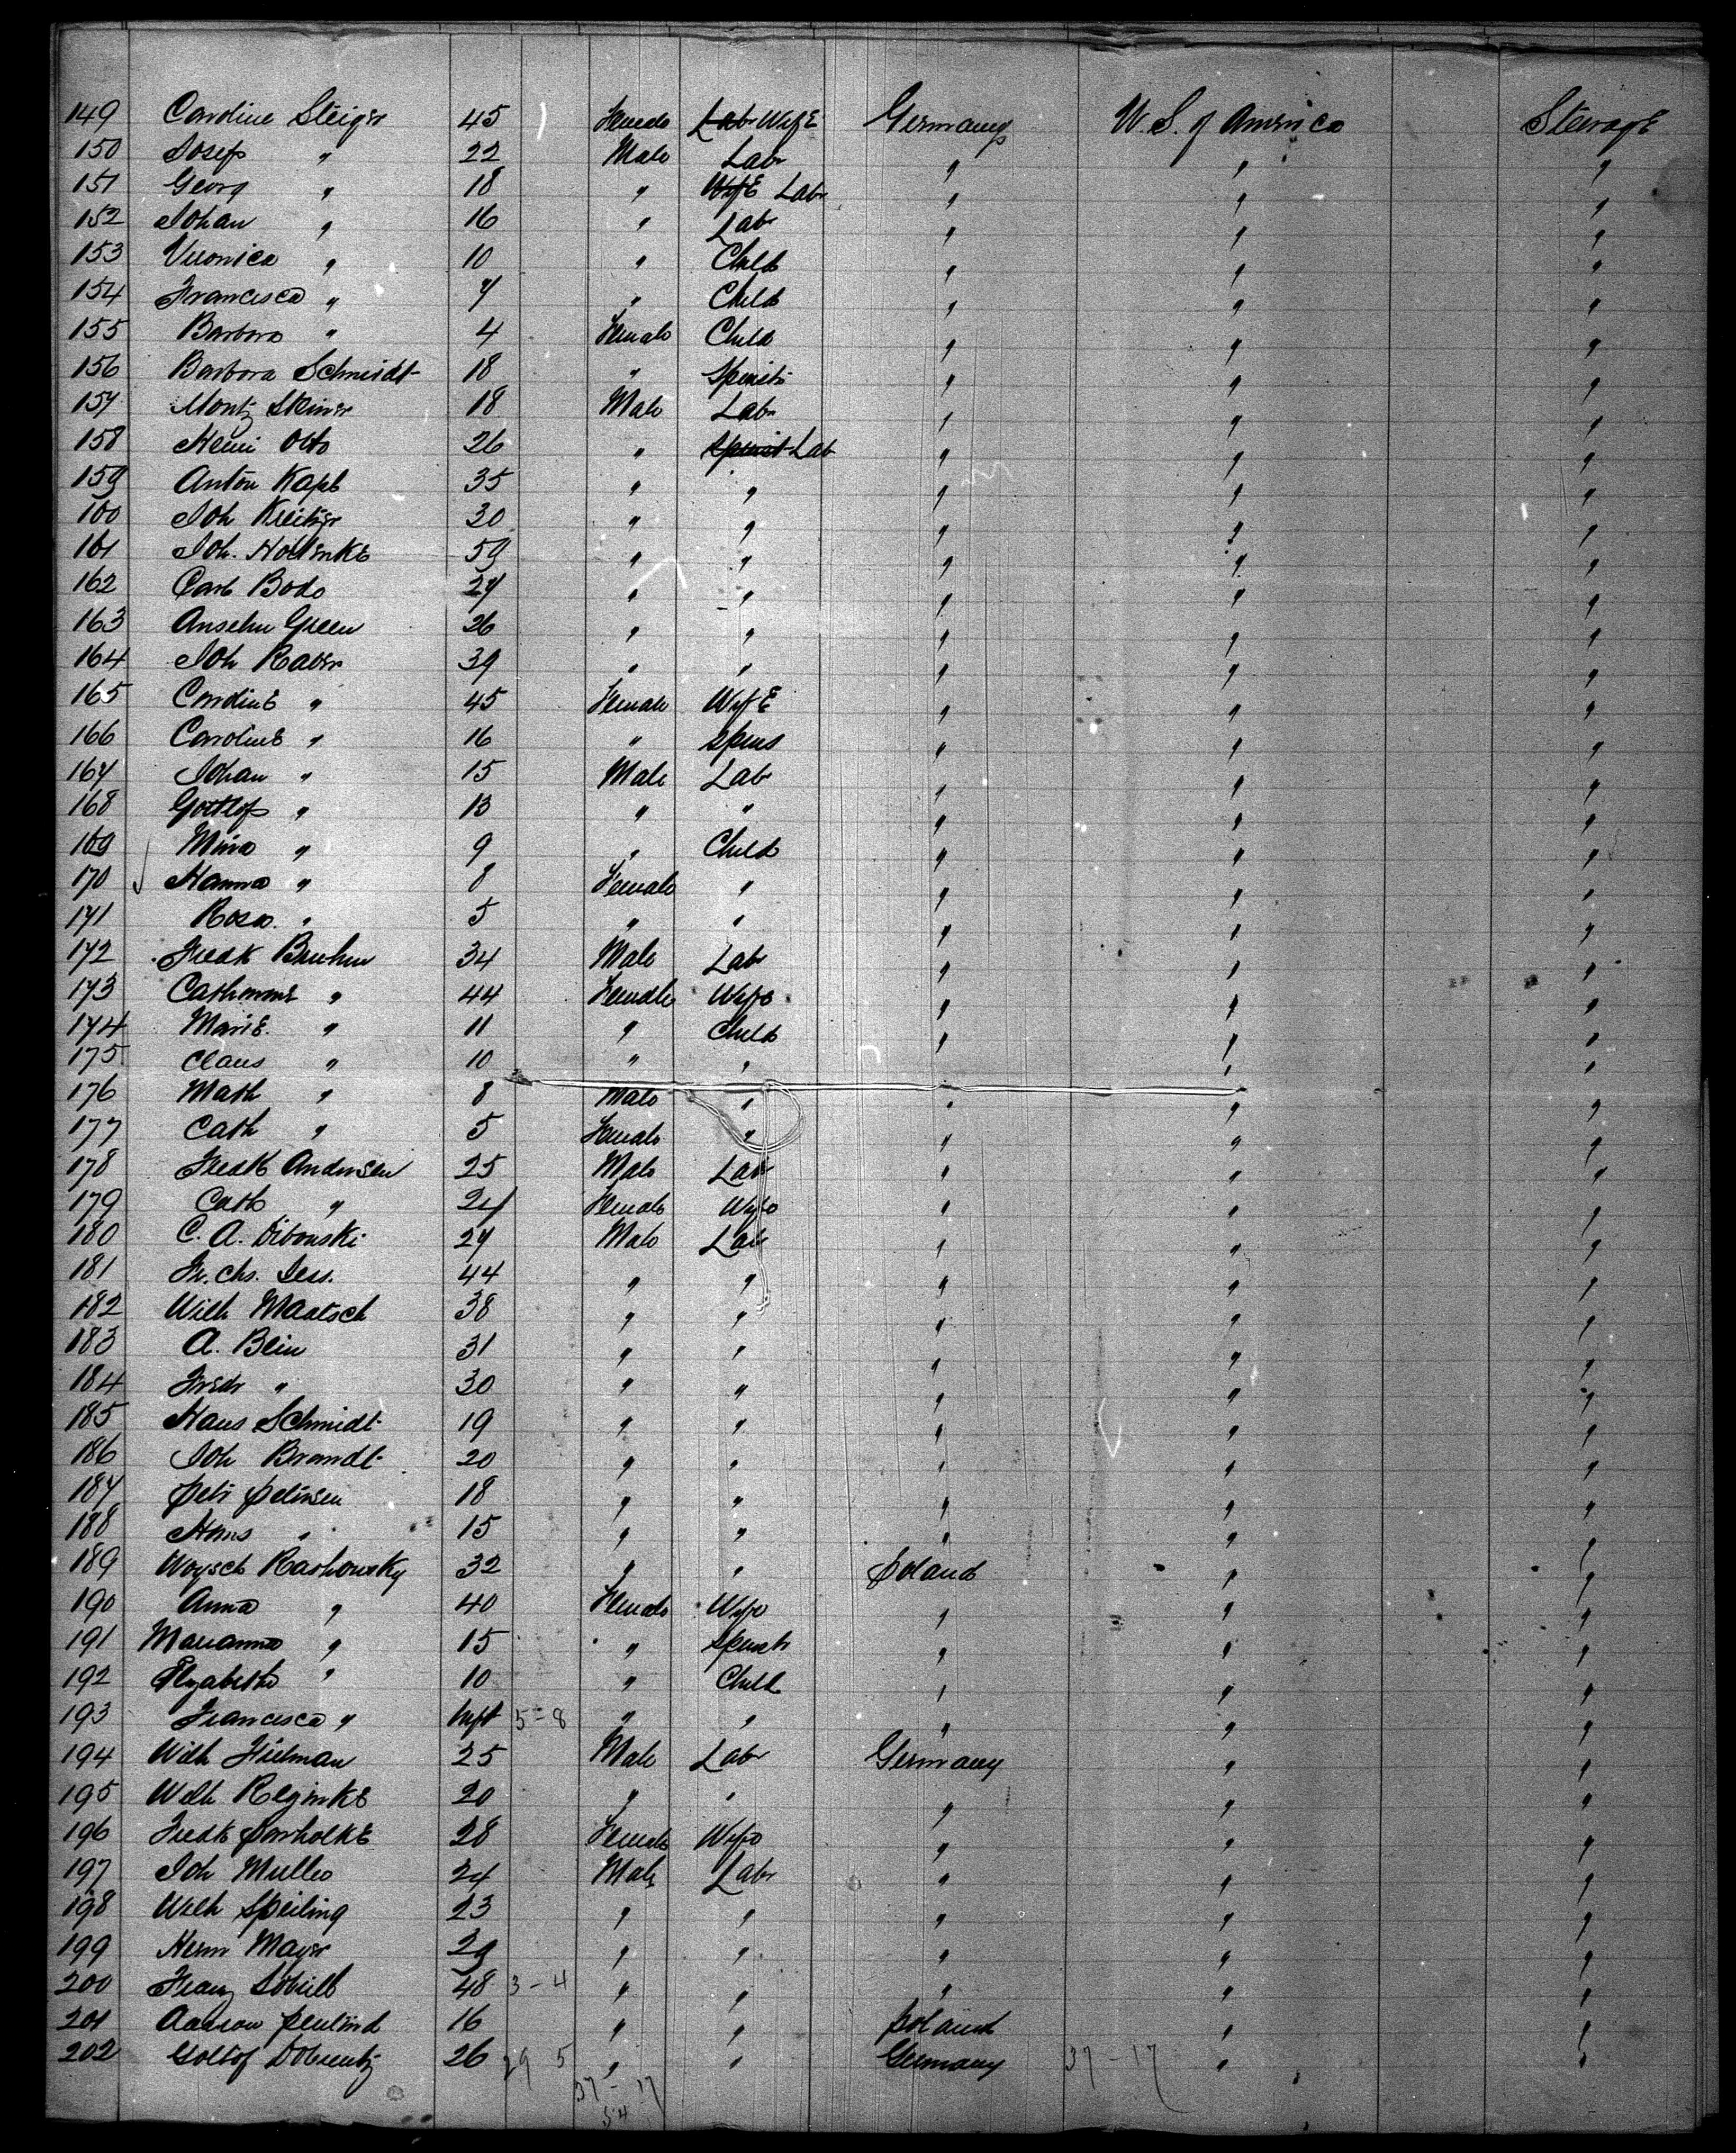 149 Caroline Steiger 45 Female Lab Wife Germany U. S. of America Steerage
150 Josef " 22 Male Lab " " "
151 Georg " 18 " Wife Lab " " "
152 Johan " 16 " Lab " " "
153 Veronica " 10 " Child " " "
154 Francisca " 7 " Child " " "
155 Barbara " 4 Female Child " " "
156 Barbara Schmidt 18 " Spinstr " " "
157 Moritz 18 Male Lab " " "
158 Henri Otto 26 " Spinst Lab " " "
159 Anton Kapt 35 " " " " "
160 Joh 30 " " " " "
161 Joh. 59 " " " " "
162 Carl Bodo 27 " " " " "
163 Anselm Green 26 " " " " "
164 Joh Rauer 39 " " " " "
165 Caroline " 45 Female Wife " " "
166 Caroline " 16 " Spins " " "
167 Johan " 15 Male Lab " " "
168 Gottlop " 13 " " " " "
169 Mina " 9 " Child " " "
170 Hanna " 8 Female " " " "
171 Rosa " 5 " " " " "
172 Fredk Bruhn 34 Male Lab " " "
173 " 44 Female Wife " " "
174 Marie " 11 " Child " " "
175 Claus " 10 " " " " "
176 Math " 8 Male " " " "
177 Cath " 5 Female " " " "
178 Fredk Andersen 25 Male Lab " " "
179 Cath " 24 Female Wife " " "
180 C. A. Dibouski 27 Male Lab " " "
181 Fr. Chs. 44 " " " " "
182 Wilh Maatsch 38 " " " " "
183 A. Blein 31 " " " " "
184 Fredr " 30 " " " " "
185 Hans Schmidt 19 " " " " "
186 Joh Brandt 20 " " " " "
187 Petr Petersen 18 " " " " "
188 Hans " 15 " " " " "
189 Woysch Rashowsky 32 " " Poland " "
190 Anna " 40 Female Wife " " "
191 Marianna " 15 " Spinstr " " "
192 Elyabetha " 10 " Child " " "
193 Francesca " Inft 5-8 " " " " "
194 Wilh Fielman 25 Male Lab Germany " "
195 Wilh Reginke 20 " " " " "
196 Fredk Parholke 28 Female Wife " " "
197 Joh Muller 24 Male Lab " " "
198 Wilh Speiling 23 " " " " "
199 Herm Mayer 29 " " " " "
200 Franz 48 3-4 " " " " "
201 16 " " Poland " "
202 Gottlof 26 29 5 " " Germany 37-17 " "
37-17
54